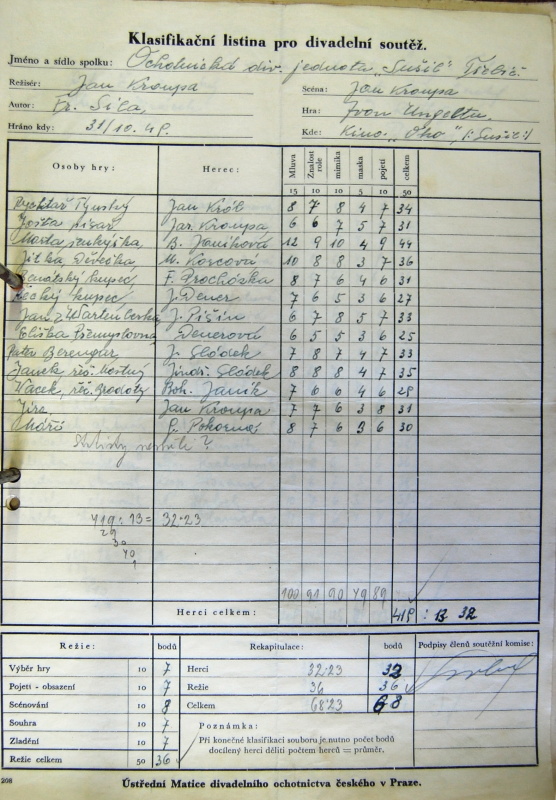 Klasifikační listina pro divadelní soutěž.
Jméno a sídlo spolku: Ochotnická div. jednota „Sušil" Třebíč.
Režisér: Jan Kroupa Scéna: Jan Kroupa
Autor: Fr. Síla, Hra: Ivon Ungeltu.
Hráno kdy: 31/10. 48. Kde: Kino „Oko",
Osoby hry: Herec: Mluva Znalost role mimika maska pojetí celkem
15 10 10 5 10 50
Rychtář Týnský Jan Král 8 7 8 4 7 34
Jošta písař Jar. Kroupa 6 6 7 5 7 31
Marta B. Janíková 12 9 10 4 9 44
Jitka M. Koscová 10 8 8 3 7 36
Benátský kupec F. Procházka 8 7 6 4 6 31
Řecký kupec J. Dener 7 6 5 3 6 27
Jan z Wartenberka J. Pišín 6 7 8 5 7 33
Eliška Přemyslovna Denerová 6 5 5 3 6 25
Pater Berengar J. Sládek 7 8 7 4 7 33
Janek řeč. Mostný Jindř. Sládek 8 8 8 4 7 35
Vacek, řeč. Bradatý Boh. Janík 7 6 6 4 6 29
Jíra, Jan Kroupa 7 7 6 3 8 31
Máří P. Pokorná 8 7 6 3 6 30
419 : 13 = 32·23
29
30
40
1
100 91 90 49 89
Herci celkem: 419 : 13 32
Režie: bodů Rekapitulace: bodů Podpisy členů soutěžní komise:
Výběr hry 10 7 Herci 32·23 32
Pojetí - obsazení 10 7 Režie 36 36
Scénování 10 8 Celkem 68·23 68
Souhra 10 7 Poznámka:
Zladění 10 7 Při konečné klasifikaci souboru je nutno počet bodů
Režie celkem 50 36 docílený herci děliti počtem herců = průměr.
208 Ústřední Matice divadelního ochotnictva českého v Praze.